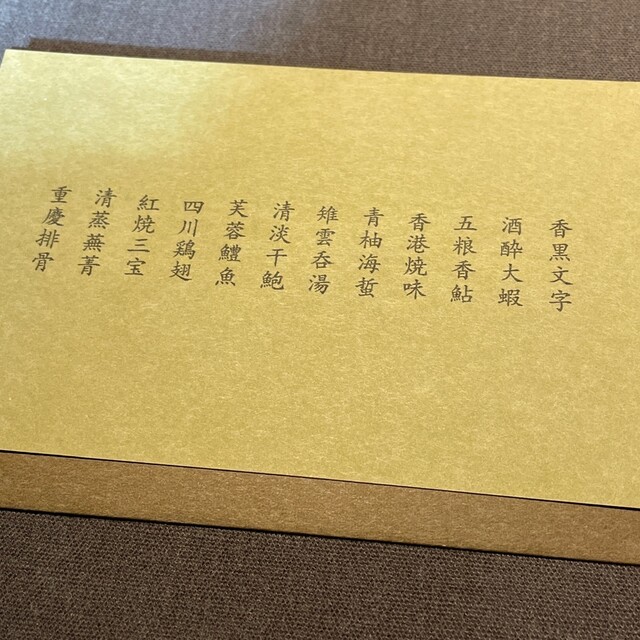 香黒文字
酒酔大蝦
五粮香鮎
香港焼味
青柚海蜇
雉雲呑湯
清淡干鮑
芙蓉鱧魚
四川鶏翅
紅焼三宝
清蒸蕪菁
重慶排骨